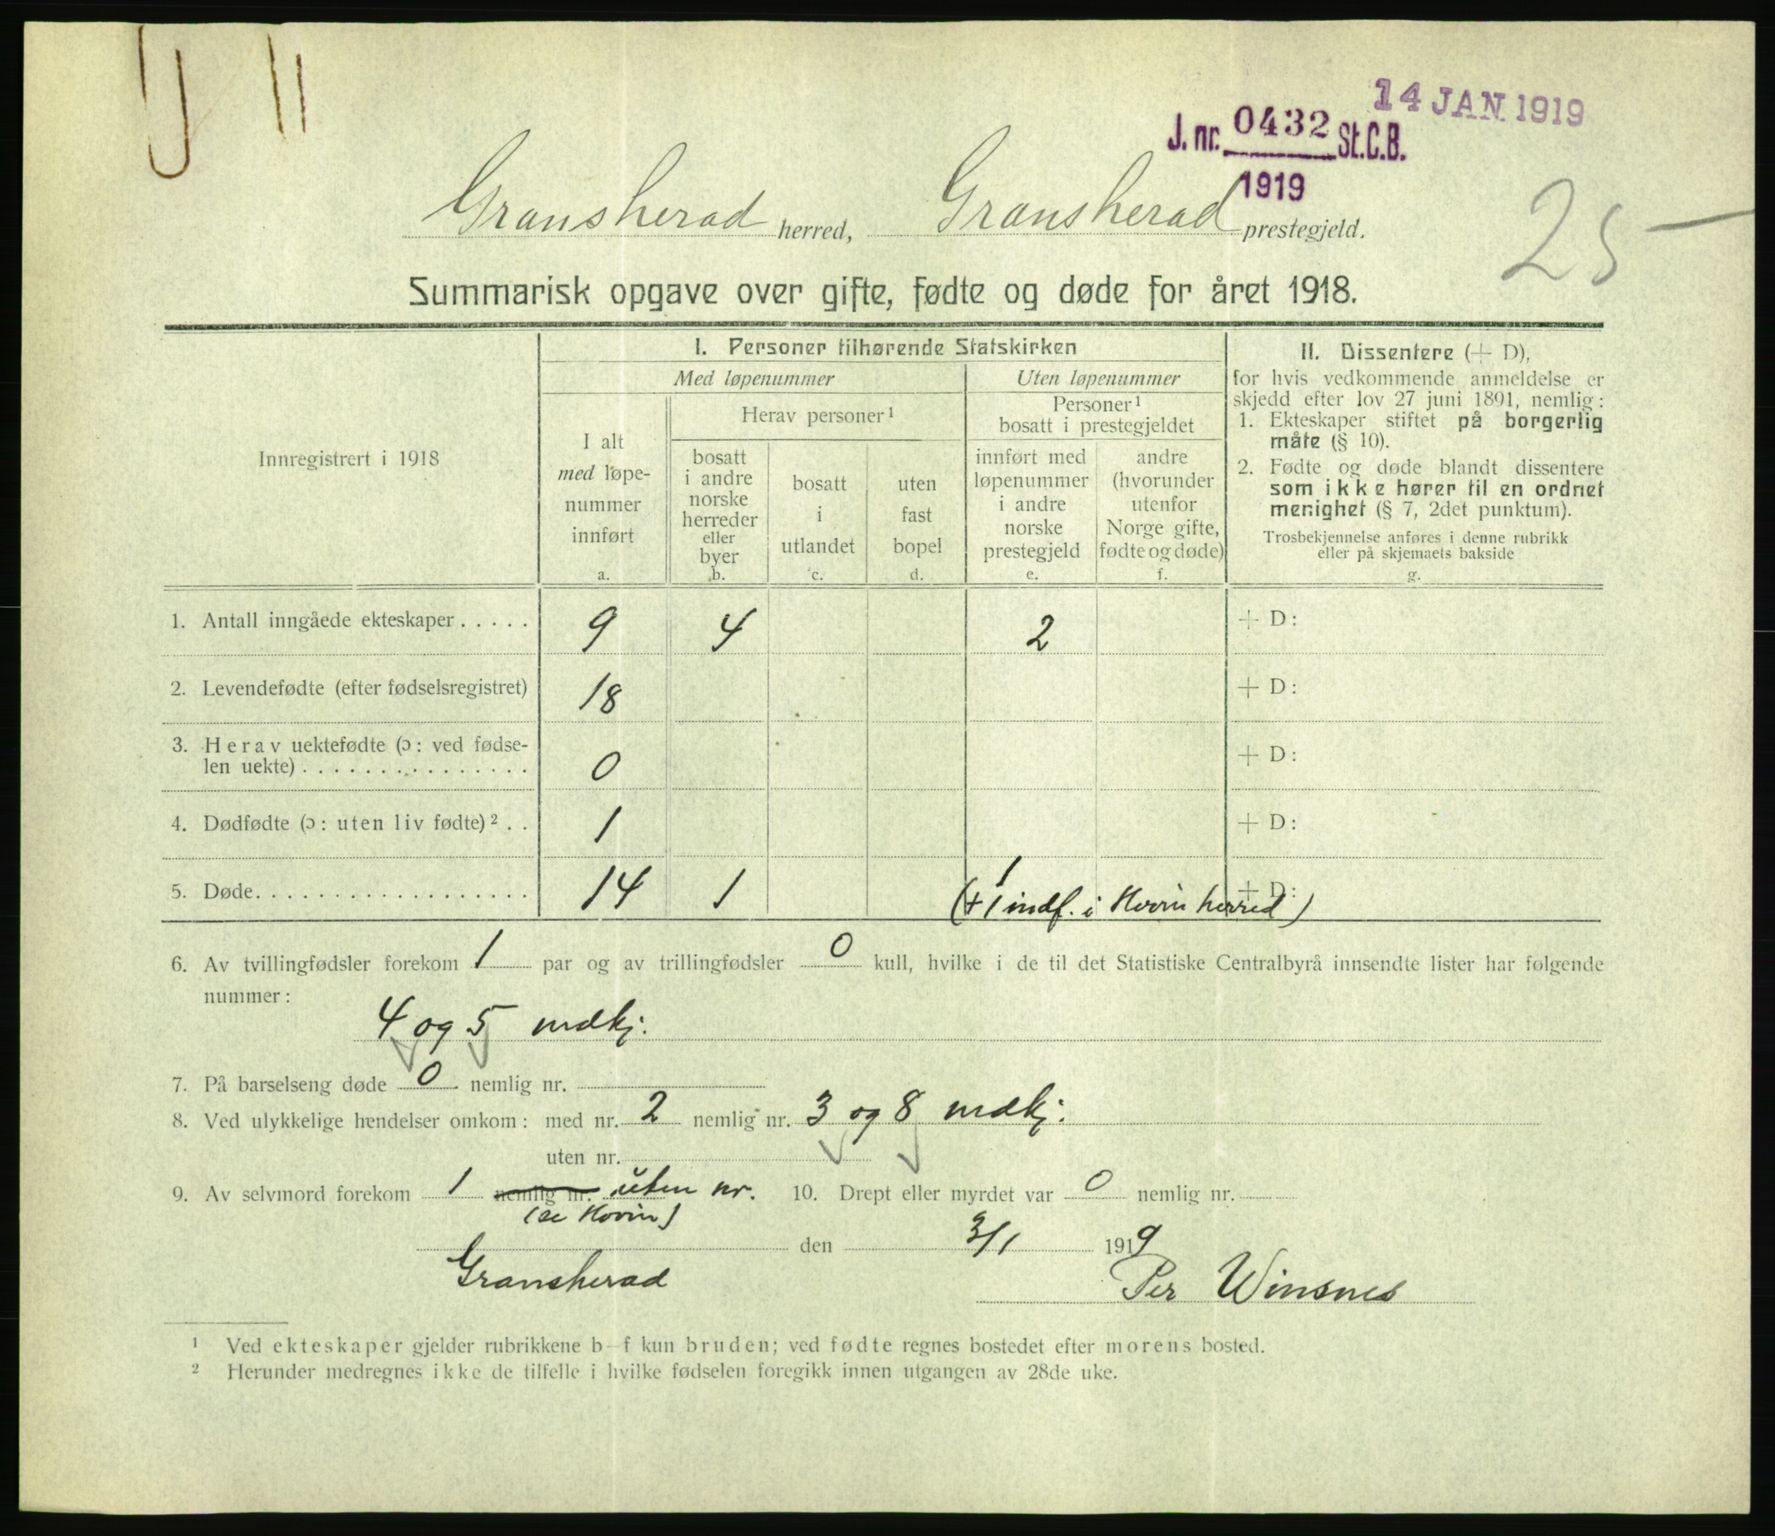 14 JAN 1919
J. nr. 0432 St.C.B.
1919
25
Gransherad herred, Gransherad prestegjeld.
Summarisk opgave over gifte, fødte og døde for året 1918.
Innregistrert i 1918
I. Personer tilhørende Statskirken
Med løpenummer
Uten løpenummer
I alt
med løpe-
nummer
innført
a.
Herav personer¹
bosatt
i andre
norske
herreder
eller
byer
b.
bosatt
i
utlandet
c.
uten
fast
bopel
d.
Personer¹
bosatt i prestegjeldet
innført med
løpenummer
i andre
norske
prestegjeld
e.
andre
(hvorunder
utenfor
Norge gifte,
fødte og døde)
f.
II. Dissentere (+ D),
for hvis vedkommende anmeldelse er
skjedd efter lov 27 juni 1891, nemlig:
1. Ekteskaper stiftet på borgerlig
måte (§ 10).
2. Fødte og døde blandt dissentere
som ikke hører til en ordnet
menighet (§ 7, 2det punktum).
Trosbekjennelse anføres i denne rubrikk
eller på skjemaets bakside
g.
1. Antall inngåede ekteskaper . . . . . 9 4 2 + D:
2. Levendefødte (efter fødselsregistret) 18 + D:
3. Herav uektefødte (ɔ: ved fødse-
len uekte) . . . . . . . . . . . . . . . 0 + D:
4. Dødfødte (ɔ: uten liv fødte)² . . 1 + D:
5. Døde. . . . . . . . . . . . . . . . . . 14 1 1 + D:
(+ 1 indf. i Hovin herred)
6. Av tvillingfødsler forekom 1 par og av trillingfødsler 0 kull, hvilke i de til det Statistiske Centralbyrå innsendte lister har følgende
nummer:
4 og 5 mdkj.
7. På barselseng døde 0 nemlig nr.
8. Ved ulykkelige hendelser omkom: med nr. 2 nemlig nr. 3 og 8 mdkj.
uten nr.
9. Av selvmord forekom 1 nemlig nr. uten nr. 10. Drept eller myrdet var 0 nemlig nr.
(se Hovin)
den 3/1 1919
Gransherad
Per Winsnes
¹ Ved ekteskaper gjelder rubrikkene b—f kun bruden; ved fødte regnes bostedet efter morens bosted.
² Herunder medregnes ikke de tilfelle i hvilke fødselen foregikk innen utgangen av 28de uke.